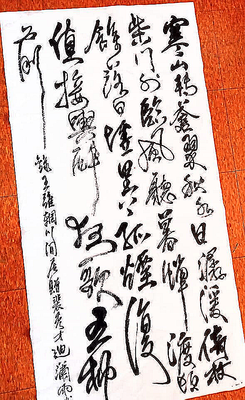 寒山轉蒼翠秋水日潺湲倚杖
柴门外臨風聽暮蟬渡頭
餘落日墟里上孤煙復
值接輿醉狂歌五柳
前
錄王維輞川闲居贈裴秀才迪